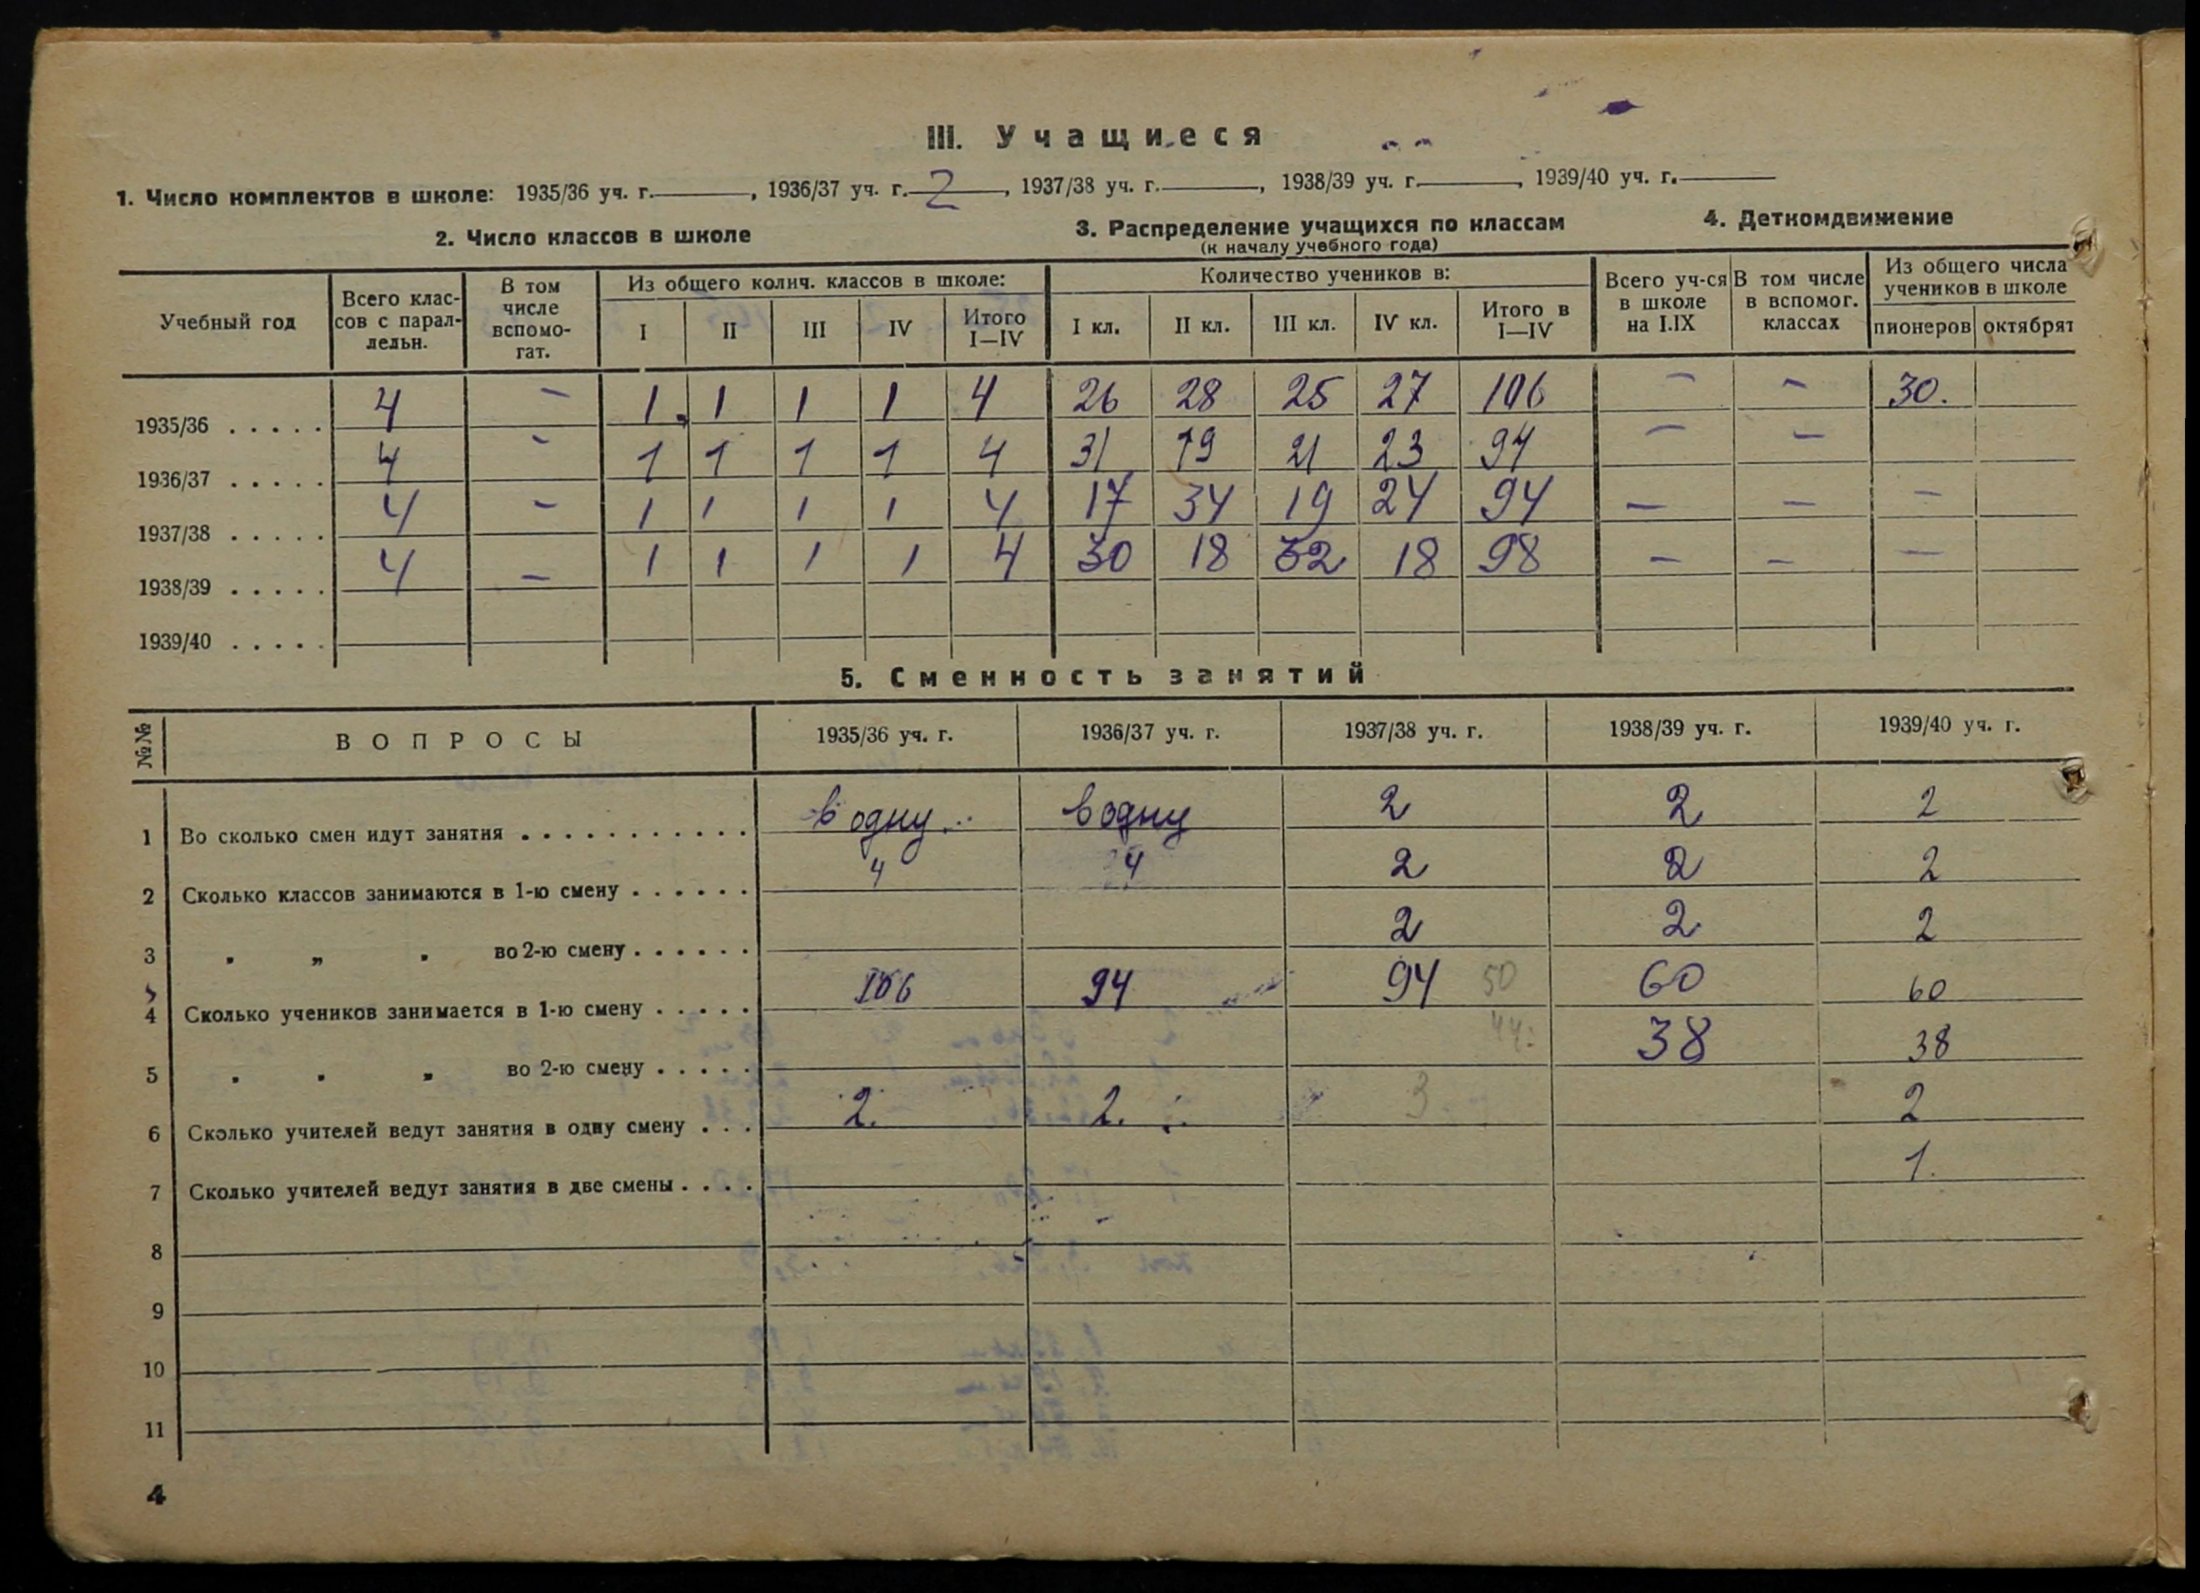 III. Учащиеся
1. Число комплектов в школе: 1935/36 уч. г. , 1936/37 уч. г. 2 , 1937/38 уч. г. , 1938/39 уч. г. , 1939/40 уч. г.
2. Число классов в школе 3. Распределение учащихся по классам 4. Деткомдвижение
(к началу учебного года)
Учебный год Всего классов с параллельн. В том числе вспомогат. Из общего колич. классов в школе: Количество учеников в: Всего уч-ся в школе на I.IX В том числе в вспомог. классах Из общего числа учеников в школе
I II III IV Итого I—IV I кл. II кл. III кл. IV кл. Итого в I—IV пионеров октябрят
1935/36 . . . . . 4 — 1 1 1 1 4 26 28 25 27 106 — — 30.
1936/37 . . . . . 4 — 1 1 1 1 4 31 19 21 23 94 — —
1937/38 . . . . . 4 — 1 1 1 1 4 17 34 19 24 94 — — —
1938/39 . . . . . 4 — 1 1 1 1 4 30 18 32 18 98 — — —
1939/40 . . . . .
5. Сменность занятий
№№ ВОПРОСЫ 1935/36 уч. г. 1936/37 уч. г. 1937/38 уч. г. 1938/39 уч. г. 1939/40 уч. г.
1 Во сколько смен идут занятия . . . . . . . . . . . в одну в одну 2 2 2
2 Сколько классов занимаются в 1-ю смену . . . . . . 4 4 2 2 2
3 „ „ „ во 2-ю смену . . . . . . 2 2 2
4 Сколько учеников занимается в 1-ю смену . . . . . 106 94 94 50 60 60
5 „ „ „ во 2-ю смену . . . . . 44 38 38
6 Сколько учителей ведут занятия в одну смену . . . 2. 2. 3. 2
7 Сколько учителей ведут занятия в две смены . . . . 1.
8
9
10
11
4